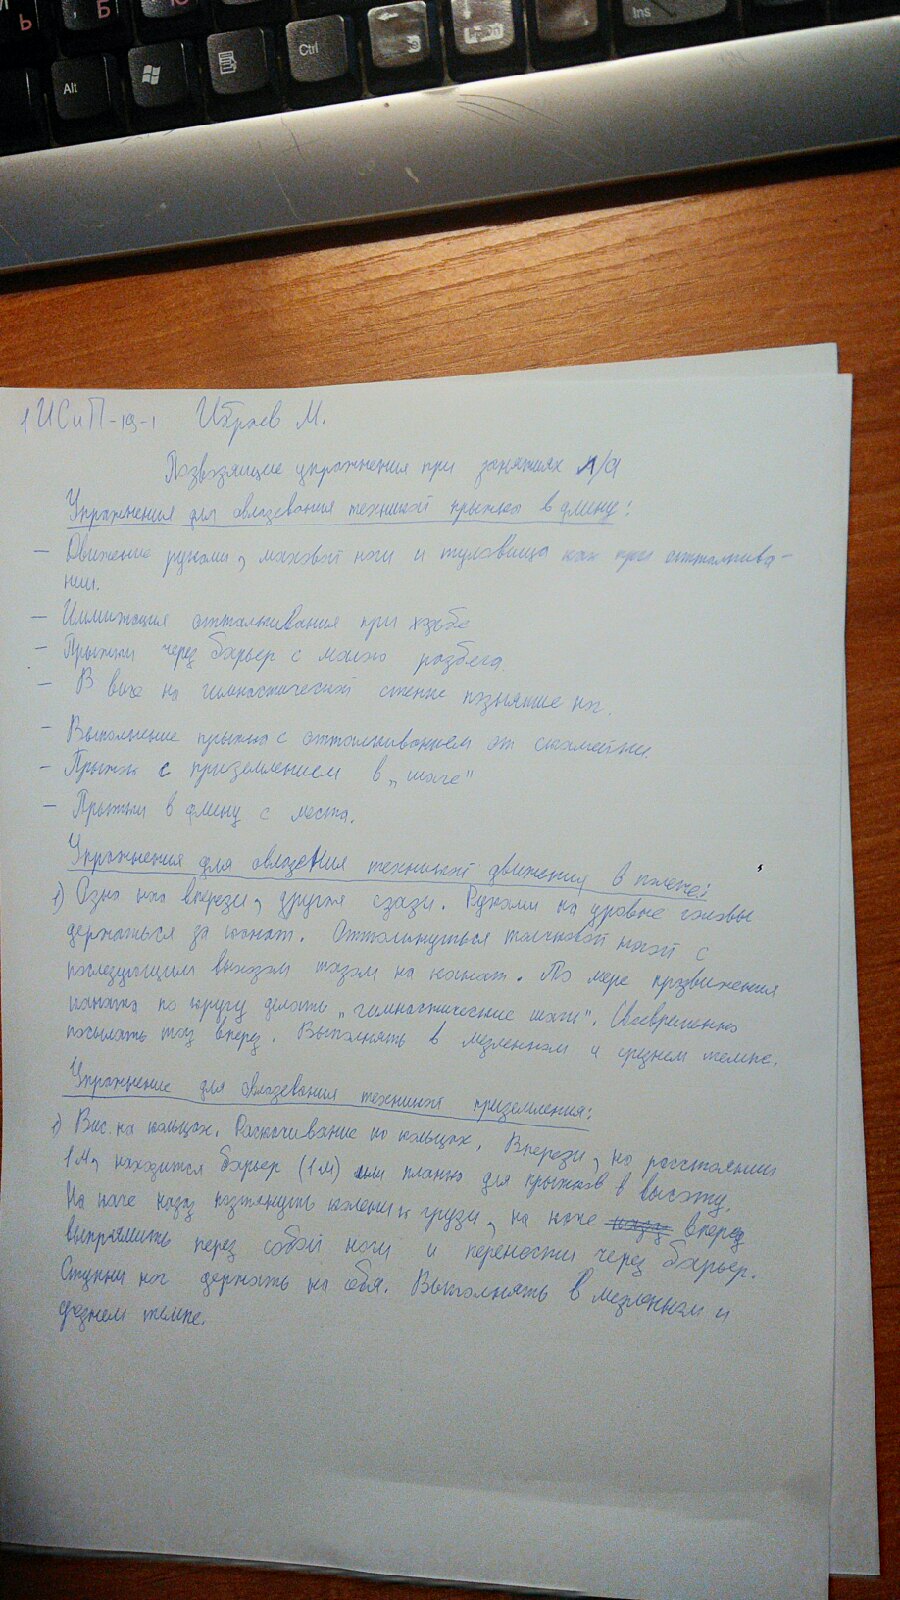 ь Б Ю
Alt Ctrl Ins
1ИСиП-19-1 Ибраев М.
Подводящие упражнения при занятиях л/а
Упражнения для овладевания техникой прыжка в длину:
— Движение руками, маховой ноги и туловища как при отталкива-
нии.
— Имитация отталкивания при ходьбе
— Прыжки через барьер с малого разбега
— В висе на гимнастической стенке поднятие ног.
— Выполнение прыжка с отталкиванием от скамейки.
— Прыжок с приземлением в „шаге"
— Прыжки в длину с места.
Упражнения для овладения техникой движения в полете:
1) Одна нога впереди, другая сзади. Руками на уровне головы
держаться за канат. Оттолкнуться толчковой ногой с
последующим выходом тазом на канат. По мере продвижения
каната по кругу делать „гимнастические шаги". Своевременно
посылать таз вперед. Выполнять в медленном и среднем темпе.
Упражнение для овладевания техникой приземления:
1) Вис на кольцах. Раскачивание на кольцах. Впереди, на расстоянии
1м, находится барьер (1м) или планка для прыжков в высоту.
На махе назад подтянуть колени к груди, на махе вперед
выпрямить перед собой ноги и перености через барьер.
Ступни ног держать на себя. Выполнять в медленном и
среднем темпе.